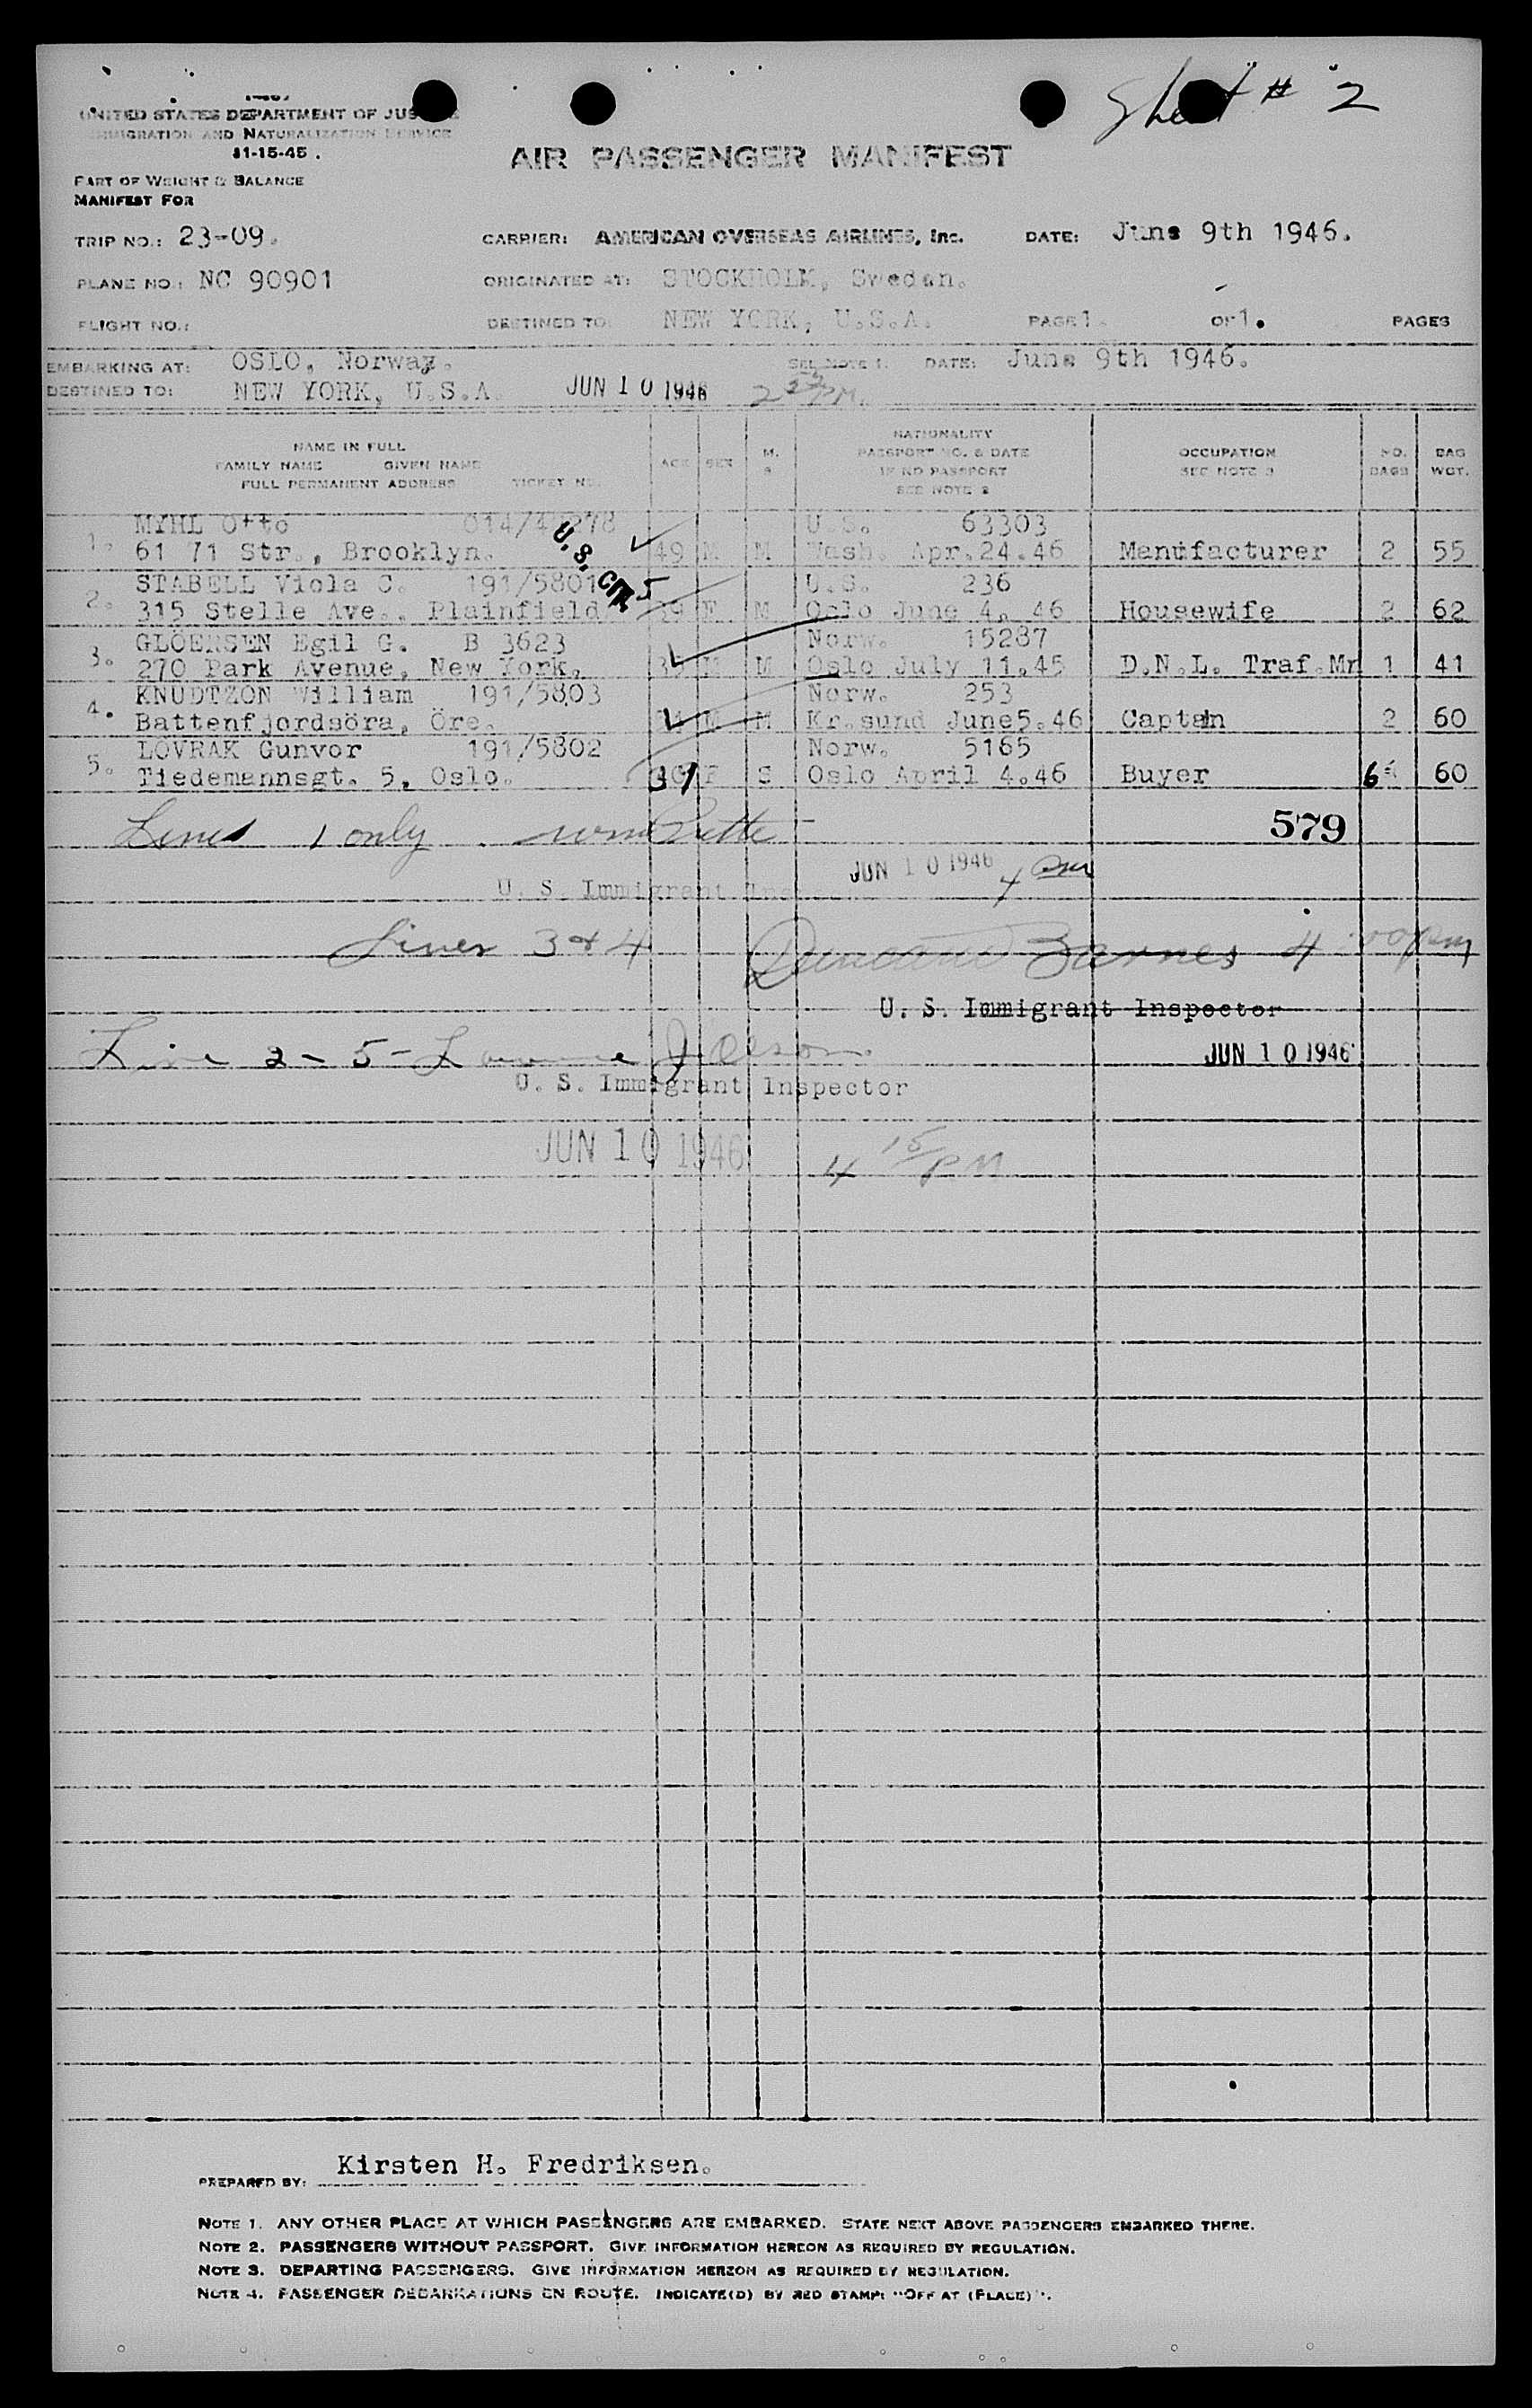 Sheet # 2
UNITED STATES DEPARTMENT OF JUSTICE
IMMIGRATION AND NATURALIZATION SERVICE
11-15-45.
AIR PASSENGER MANIFEST
PART OF WEIGHT & BALANCE
MANIFEST FOR
TRIP NO.: 23-09. CARRIER: AMERICAN OVERSEAS AIRLINES, Inc. DATE: June 9th 1946.
PLANE NO.: NC 90901 ORIGINATED AT: STOCKHOLM, Sweden.
FLIGHT NO.: DESTINED TO: NEW YORK, U.S.A. PAGE 1. OF 1. PAGES
EMBARKING AT: OSLO, Norway. SEE NOTE 1. DATE: June 9th 1946.
DESTINED TO: NEW YORK, U.S.A. JUN 10 1946 PM.
NAME IN FULL
FAMILY NAME GIVEN NAME
FULL PERMANENT ADDRESS TICKET NO.
AGE SEX M. S
NATIONALITY
PASSPORT NO. & DATE
IF NO PASSPORT
SEE NOTE 2
OCCUPATION
SEE NOTE 3
NO. BAGS
BAG WGT.
MYHL Otto U.S. 63303
1. 61 71 Str., Brooklyn. 49 M M Wash. Apr.24.46 Manufacturer 2 55
U.S. CIT.
STABELL Viola C. 191/5801 U.S. 236
2. 315 Stelle Ave., Plainfield F M Oslo June 4. 46 Housewife 2 62
GLOERSEN Egil G. B 3623 Norw. 15287
3. 270 Park Avenue, New York. M M Oslo July 11.45 D.N.L. Traf.Mn 1 41
KNUDTZON William 191/5803 Norw. 253
4. Battenfjordsöra, Öre. M M Kr.sund June5.46 Captain 2 60
LOVRAK Gunvor 191/5802 Norw. 5165
5. Tiedemannsgt. 5, Oslo. 31 F S Oslo April 4.46 Buyer 6 60
Lines 1 only 579
JUN 10 1946 4 pm
U. S. Immigrant
Lines 3 & 4 Duncan Barnes 4:00 pm
U. S. Immigrant Inspector
Line 2 - 5 - JUN 10 1946
U. S. Immigrant Inspector
JUN 10 1946 4 15 PM
PREPARED BY: Kirsten H. Fredriksen.
NOTE 1. ANY OTHER PLACE AT WHICH PASSENGERS ARE EMBARKED. STATE NEXT ABOVE PASSENGERS EMBARKED THERE.
NOTE 2. PASSENGERS WITHOUT PASSPORT. GIVE INFORMATION HEREON AS REQUIRED BY REGULATION.
NOTE 3. DEPARTING PASSENGERS. GIVE INFORMATION HEREON AS REQUIRED BY REGULATION.
NOTE 4. PASSENGER DEBARKATIONS EN ROUTE. INDICATE(D) BY RED STAMP: "OFF AT (PLACE)".